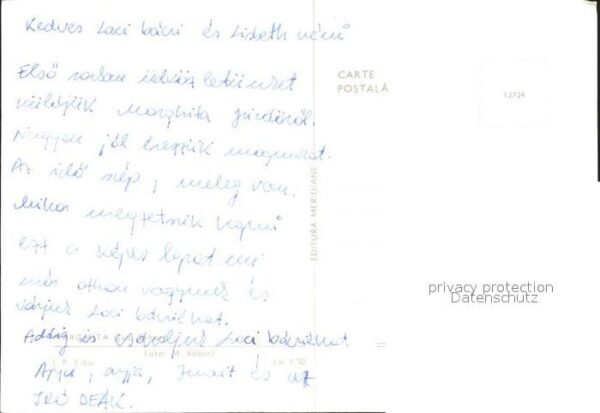 Kedves Laci bácsi és Lizbeth néni
Első sorban üdvözletünket
küldjük Marghita fürdőről.
Nagyon jól érezzük magunkat.
Az idő szép, meleg van.
Mikor megkapni
ezt a képes lapot mi
már othon vagyunk és
várjuk Laci bácsiékat.
Addig is csókoljuk Laci bácsiékat
Apju, anyja, és az
IRÓ DEÁK.
CARTE
POȘTALĂ
12724
EDITURA MERIDIANE
I. P. Sibiu
Foto H.
Lei 1,50
privacy protection
Datenschutz